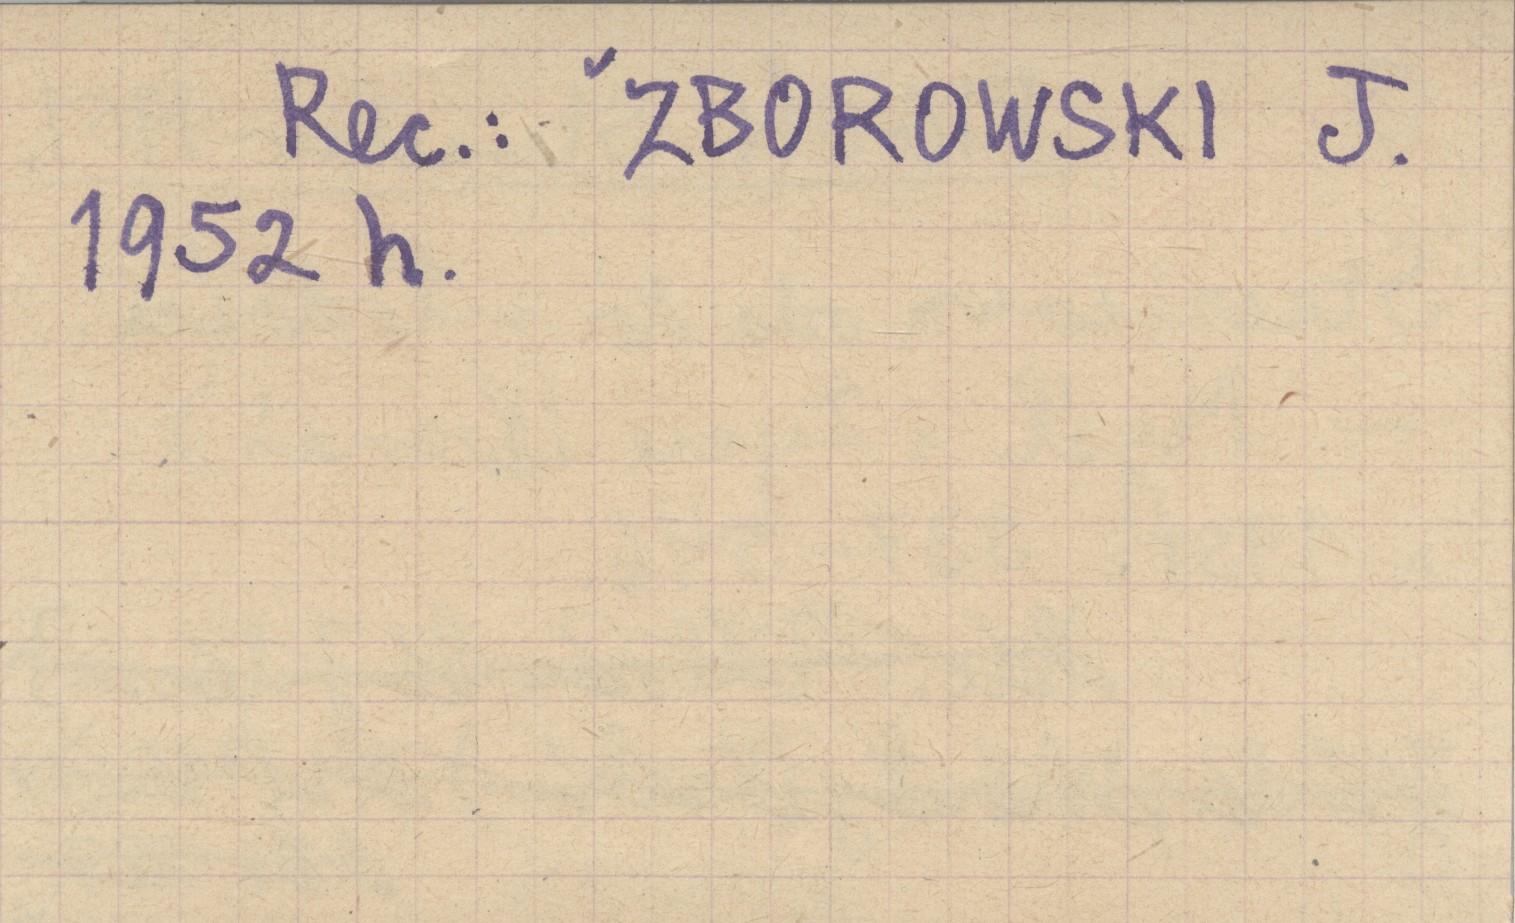 Rec.: ZBOROWSKI J.
1952 h.